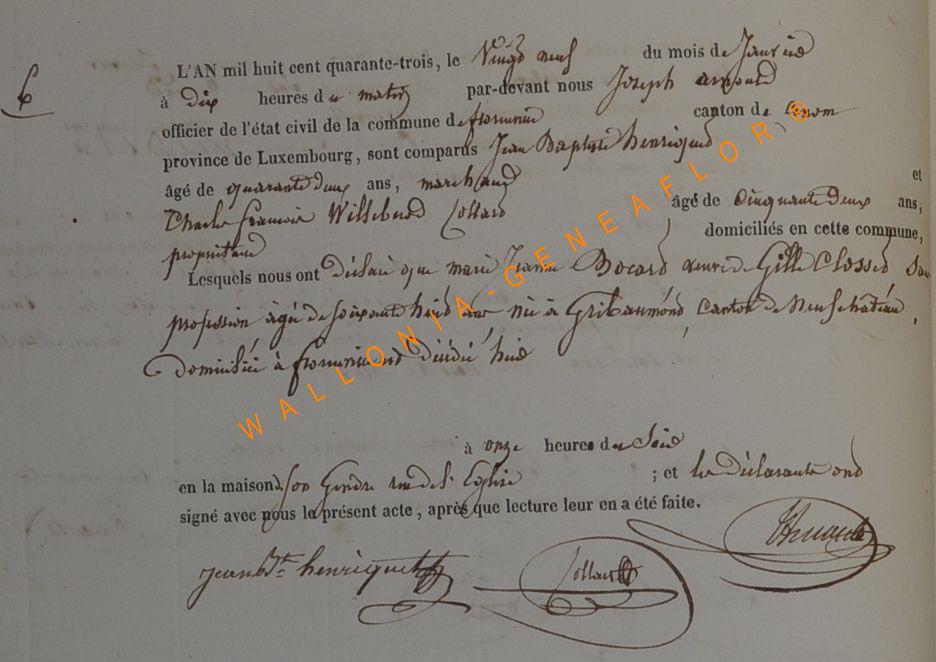 6
L'AN mil huit cent quarante-trois, le Vingt neuf du mois de Janvier
à dix heures du matin par-devant nous Joseph arnould
officier de l'état civil de la commune de florenville canton de
province de Luxembourg, sont comparus Jean Baptiste henriquet
âgé de quarante deux ans, marchand et
Charle francois Willebrod Collard âgé de cinquante deux ans,
propriétaire domiciliés en cette commune,
Lesquels nous ont déclaré que marie Jeanne Bocard veuve de Gille Closset San
profession agée de soixante huit an née à Gribaumond, canton de Neufchateau,
Domiciliée à florenville est décédée hier
à onze heures du Soir
en la maison de son Gendre rue de l'Eglise ; et les déclarants ont
signé avec nous le présent acte, après que lecture leur en a été faite.
jean bte henriquet Collard
WALLONIA-GENEAFLOR©